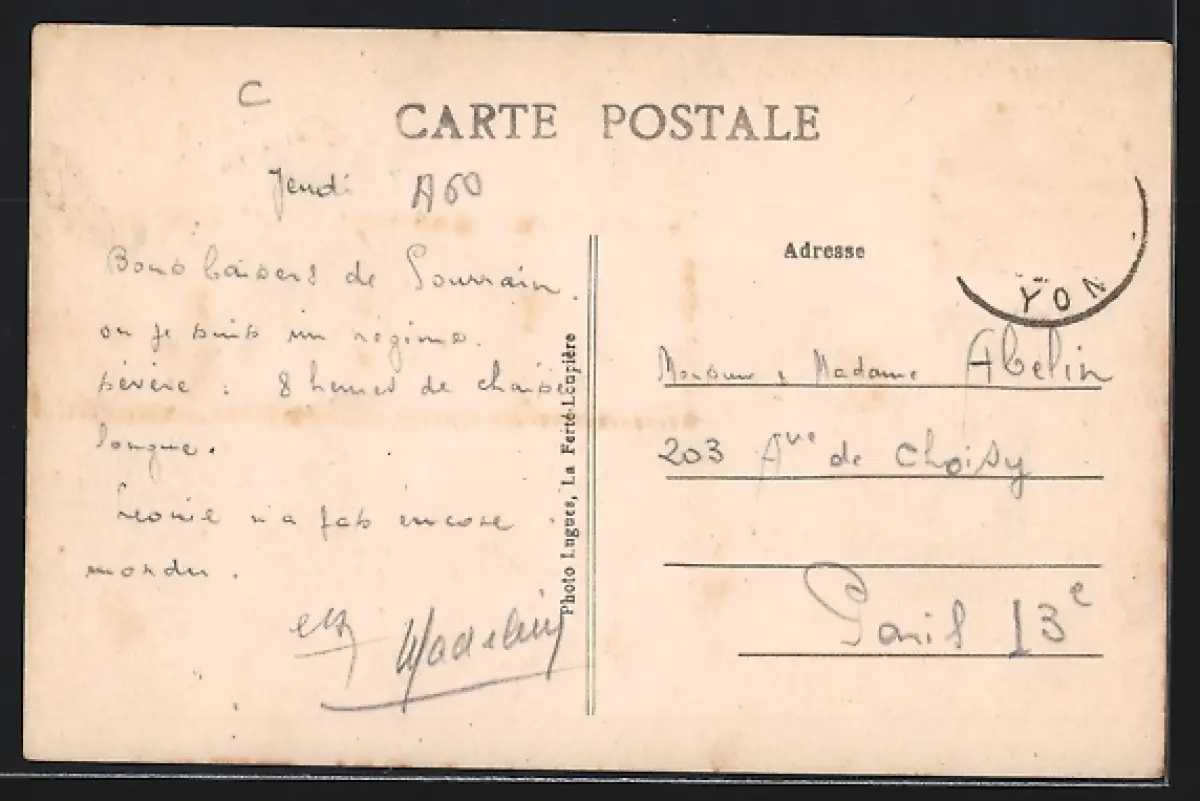 C
CARTE POSTALE
Jeudi A60
Bons baisers de Pourrain.
ou je suis un régime.
sévère : 8 heures de chaise
longue.
Leonie n'a pas encore
mordu.
Madelein
Photo Lugues, La Ferté-Loupière
Adresse
YON
Monsieur & Madame Abelin
203 Ave de Choisy
Paris 13e